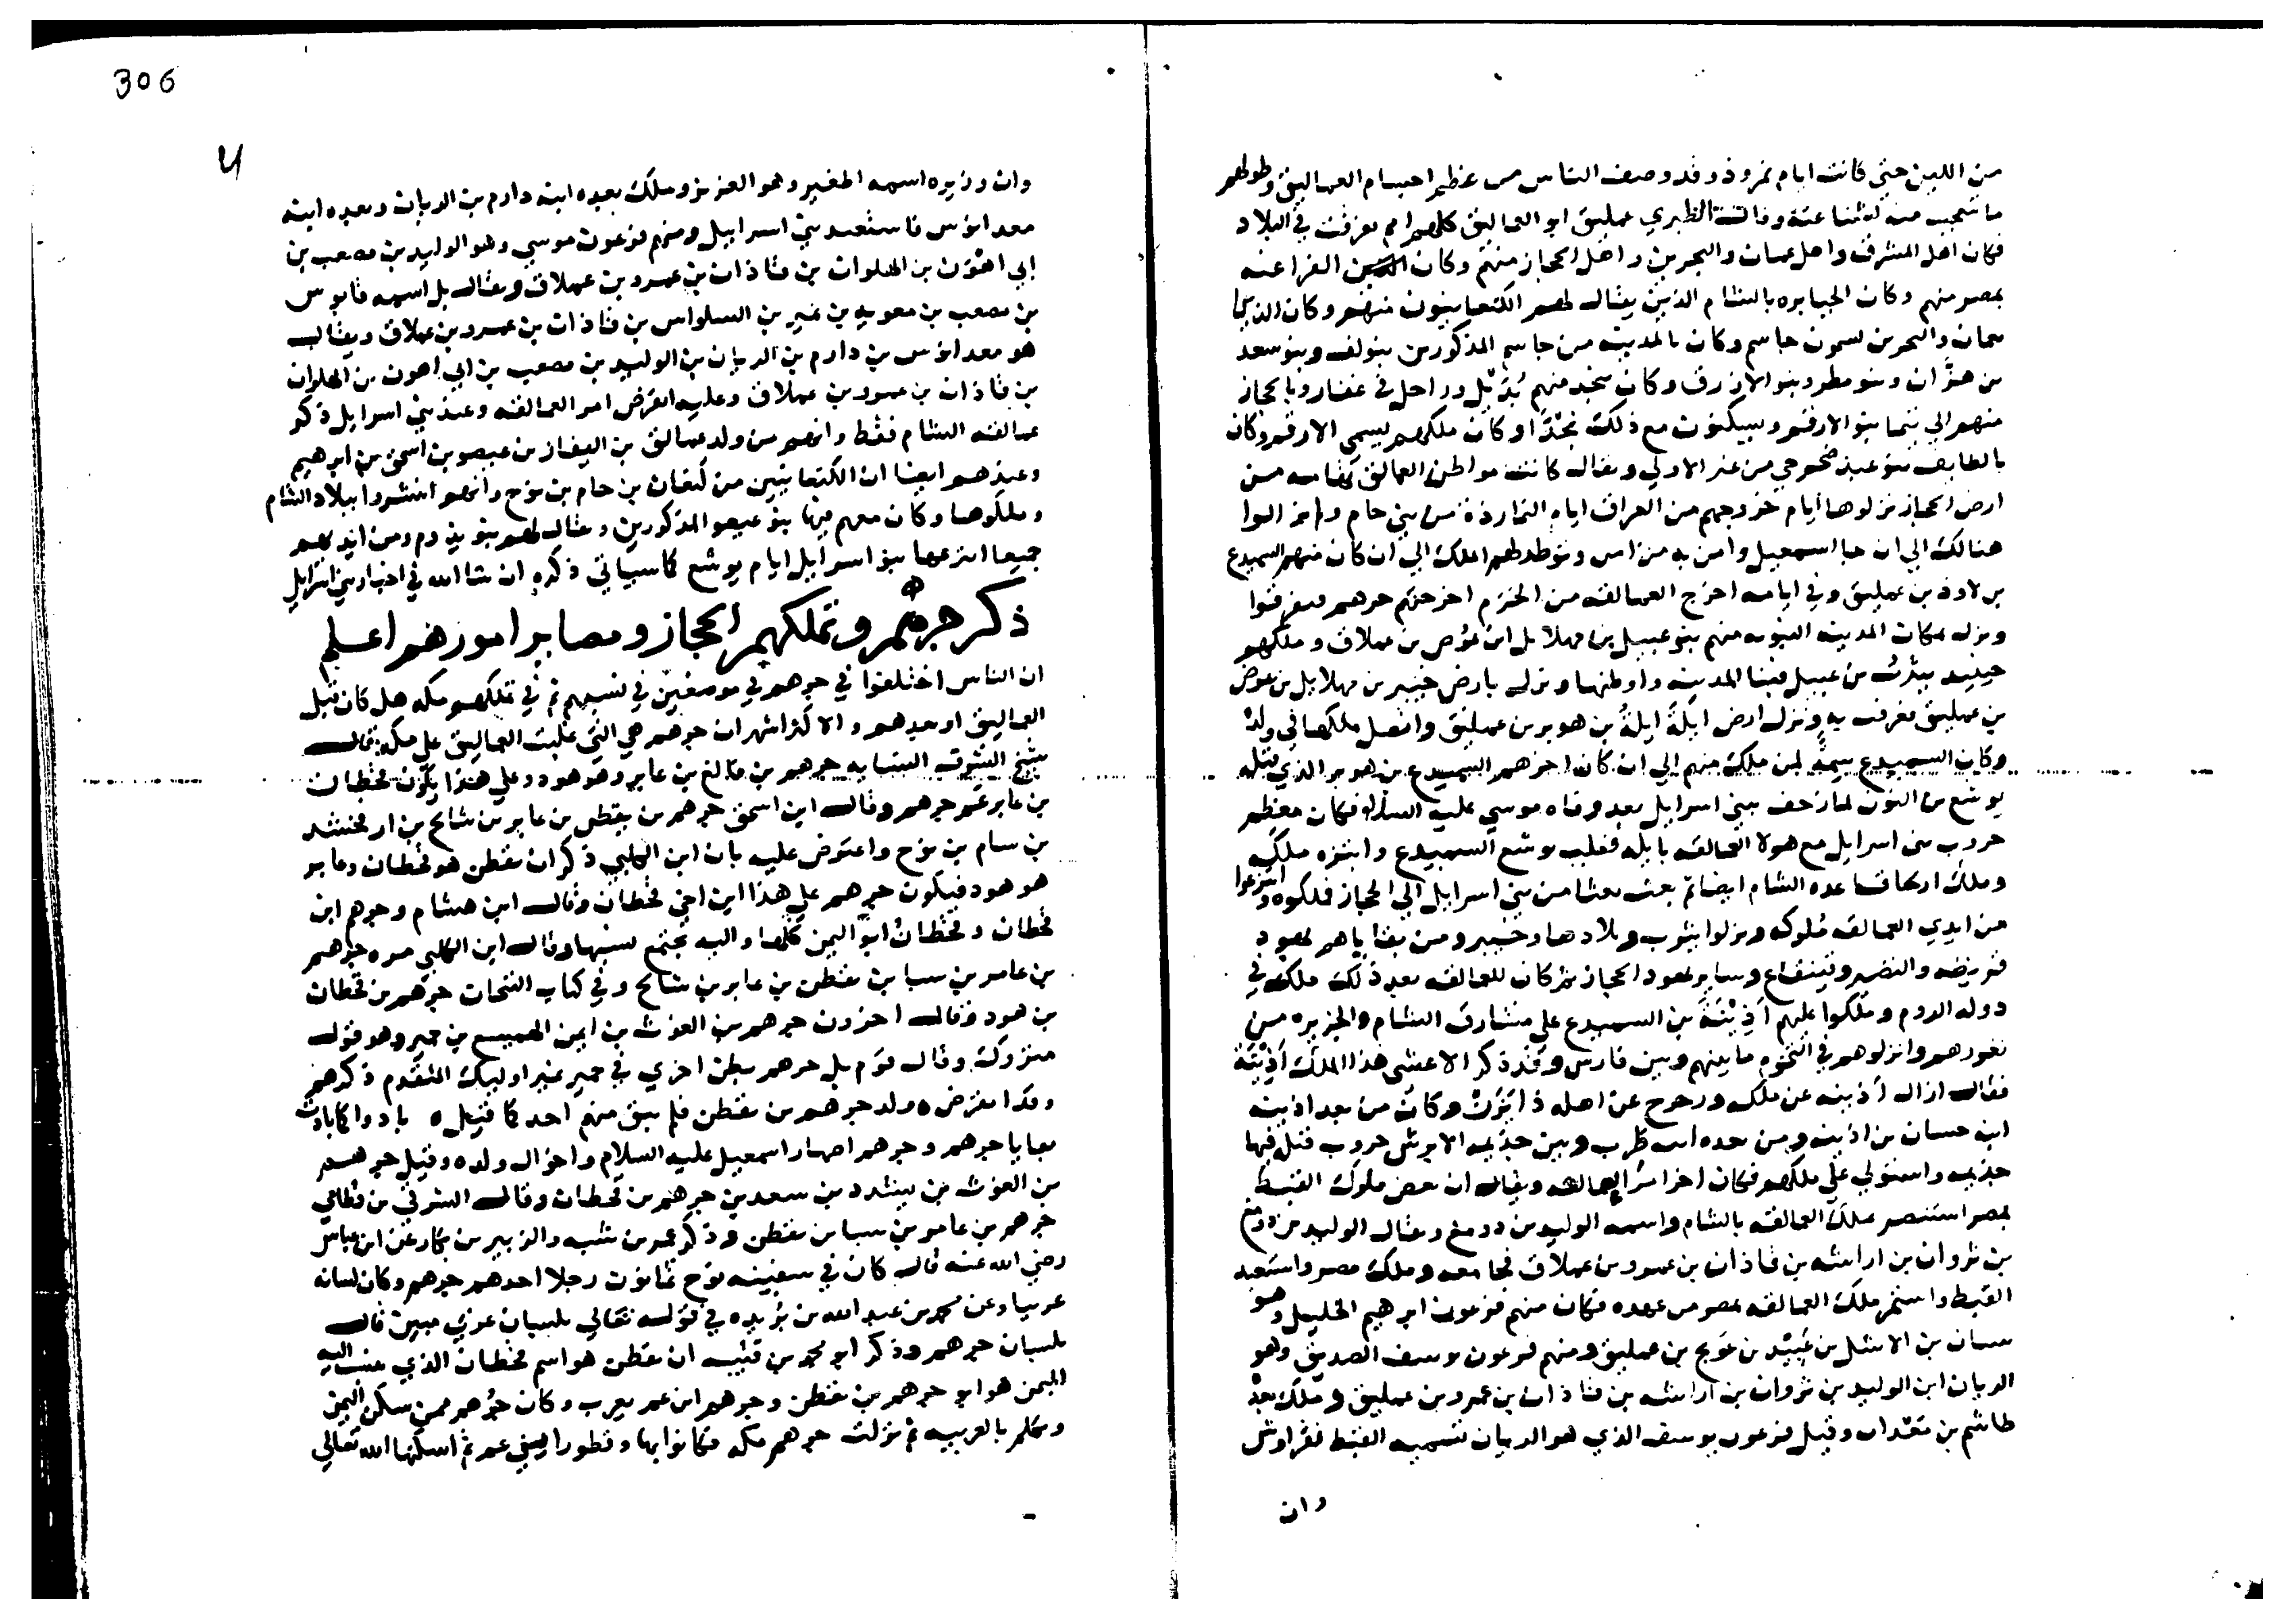 من اللبن حتي كانت ايام نمروذ وقد وصف الناس من عظيم اجسام العماليق وطولهم
ما نتعجب منه لغثنا عنه وقالت الطبري عمليق ابو العماليق كلهم امم تفرقت في البلاد
فكان اهل المشرف واهل عمان والبحرين واهل الحجاز منهم وكان الفراعنه
بمصر منهم وكان الجبابره بالشام الذين يقال لهم الكنعانيون منهم وكان الذين
بعمان والبحرين يسمون جاسم وكان بالمدينه من جاسم المذكورين بنو لف وبنو سعد
بن هزان وبنو مطر وبنو الازرق وكان بنجد منهم بُدَيْل وراحل في غفار وبالحجاز
منهم الي تيما بنو الارقم ويسكنون مع ذلك نجدًا وكان ملكهم يسمي الارقم وكان
بالطايف بنو عبد ضخم حي من عبر الاولي ويقال كانت مواطن العمالق تهامه من
ارض الحجاز نزلوها ايام خروجهم من العراق ايام النماردة من بني حام ولم يزالوا
هنالك الي ان جا اسمعيل وامن به من امن وتوطد لهم الملك الي ان كان منهم السميدع
بن لاوذ بن عمليق وفي ايامه اخرج العمالقه من الحرم اخرجتهم جرهم فتفرقوا
ونزل بمكان المدينه النبويه منهم بنو عبيل بن مهلايل ابن عوص بن عملاق وملكهم
حينيد يثرب من عبيل فبنا المدينه واوطنها ونزل بارض خيبر بن مهلايل بن عوص
بن عمليق فعرفت به ونزل ارض ايلَةَ ايلةُ بن هوبر بن عمليق واتصل ملكها في ولده
وكان السميدع سِمَةً لمن ملك منهم الي ان كان اخرهم السميدع بن هوبر الذي قتله
يوشع بن النون لما زحف ببني اسرايل بعد وفاه موسي عليه السلام فكان معظم
حروب بني اسرايل مع هولا العمالقه بايله فغلب يوشع السميدع وابتزه ملكه
وملك اريحا قاعده الشام ايضا ثم بعث بعثا من بني اسرايل الي الحجاز فملكوه وانتزعوا
من ايدي العمالقه ملوكه ونزلوا يثرب وبلادها وخيبر ومن بقاياهم يهود
قريضه والنضير وقينقاع وساير يهود الحجاز ثم كان للعمالقه بعد ذلك ملك في
دوله الروم وملكوا عليهم اُذَيْنَةَ بن السميدع علي مشارق الشام والجزيره من
ثغورهم وانزلوهم في التخوم ما بينهم وبين فارس وقد ذكر الاعشي هذا الملك اُذَيْنَة
فقال ازال اُذينه عن ملكه ورحرج عن اهله ذا يَزَنْ وكان من بعد اذينه
ابن حسان بن اذينه ومن بعده ابن ظرب وبين جذيمه الابرش حروب قتل فيها
جذيمه واستولي علي ملكهم فكان اخر امر العمالقه ويقال ان بعض ملوك القبط
بمصر استنصر ملك العمالقه بالشام واسمه الوليد بن دومغ ويقال الوليد بن دومغ
بن ثروان بن اراشه بن فاذان بن عمرو بن عملاق فجا معه وملك مصر واستعبد
القبط واستمر ملك العمالقه بمصر من عهده فكان منهم فرعون ابرهيم الخليل وهو
سنان بن الاشل بن عُبَيْد بن عويج بن عمليق ومنهم فرعون يوسف الصديق وهو
الريان ابن الوليد بن ثروان بن اراشه بن فاذان بن عمرو بن عمليق وملك بعده
طاشم بن معدان وقيل فرعون يوسف الذي هو الريان تسميه القبط نقراوش
وان
306
وان وزيره اسمه اطفير وهو العزيز وملك بعده ابنه دارم بن الريان وبعده ابنه
معدانوس فاستعبد بني اسرابيل ومنهم فرعون موسي وهو الوليد بن مصعب بن
ابي اهون بن الهلوان بن فاذان بن عمرو بن عملاق ويقال بل اسمه قابوس
بن مصعب بن معويه بن نمير بن السلواس بن فاذان بن عمرو بن عملاق ويقال
هو معدانوس بن دارم بن الريان بن الوليد بن مصعب بن ابي اهون بن الهلوان
بن فاذان بن عمرو بن عملاق وعليه انقرض امر العمالقه وعند بني اسرايل ذكر
عمالقه الشام فقط وانهم من ولد عمالق بن اليفاز بن عيصو بن اسحق بن ابرهيم
وعندهم ايضا ان الكنعانيين من كنعان بن حام بن نوح وانهم انتشروا ببلاد الشام
وملكوها وكان معهم فيها بنو عيصو المذكورين ويقال لهم بنو يذوم ومن ايديهم
جميعا انتزعها بنو اسرايل ايام يوشع كما سياتي ذكره ان شا الله في اخبار بني اسرايل
ذكر جرهم وتملكهم الحجاز ومصاير امورهم اعلم
ان الناس اختلفوا في جرهم في موضعين في نسبهم ثم في تملكهم مكه هل كان قبل
العماليق او بعدهم والاكثر اشهر ان جرهم هي التي غلبت العماليق علي مكه فقال
شيخ الشرف النسابه جرهم بن فالغ بن عابر وهو هود وعلي هذا يكون قحطان
بن عابر عم جرهم وقال ابن اسحق جرهم بن يقطن بن عابر بن شالح بن ارفخشد
بن سام بن نوح واعترض عليه بان ابن الكلبي ذكر ان يقطن هو قحطان وعابر
هو هود فيكون جرهم علي هذا ابن اخي قحطان وقال ابن هشام وجرهم ابن
قحطان وقحطان ابو اليمن كلها واليه يجتمع نسبها وقال ابن الكلبي مره جرهم
بن عامر بن سبا بن يقطن بن عابر بن شالح وفي كتاب التيجان جرهم بن قحطان
بن هود وقال اخرون جرهم بن الغوث بن ايمن الهميسع بن حمير وهو قول
متروك وقال قوم بل جرهم بطن اخري في حمير غير اوليك المتقدم ذكرهم
وقد انقرض ولد جرهم بن يقطن فلم يبق منهم احد كما قيل ه بادوا كما بادت
بقايا جرهم وجرهم اصهار اسمعيل عليه السلام واخوال ولده وقيل جرهم
بن الغوث بن يشدد بن سعد بن جرهم بن قحطان وقال الشرقي بن قطامي
جرهم بن عامر بن سبا بن يقطن وذكر عمر بن شبه والزبير بن بكار عن ابن عباس
رضي الله عنه قال كان في سفينه نوح ثمانون رجلا احدهم جرهم وكان لسانه
عربيا وعن محمد بن عبد الله بن بريده في قوله تعالي بلسان عربي مبين قال
بلسان جرهم وذكر ابو محمد بن قتيبه ان يقطن هو اسم قحطان الذي ينسب اليه
اليمن هو ابو جرهم بن يقطن وجرهم ابن عم يعرب وكان جُرهم ممن سكن اليمن
وتكلم بالعربيه ثم نزلت جرهم مكه فكانوا بها وقطورا بني عم ثم اسكنها الله تعالي